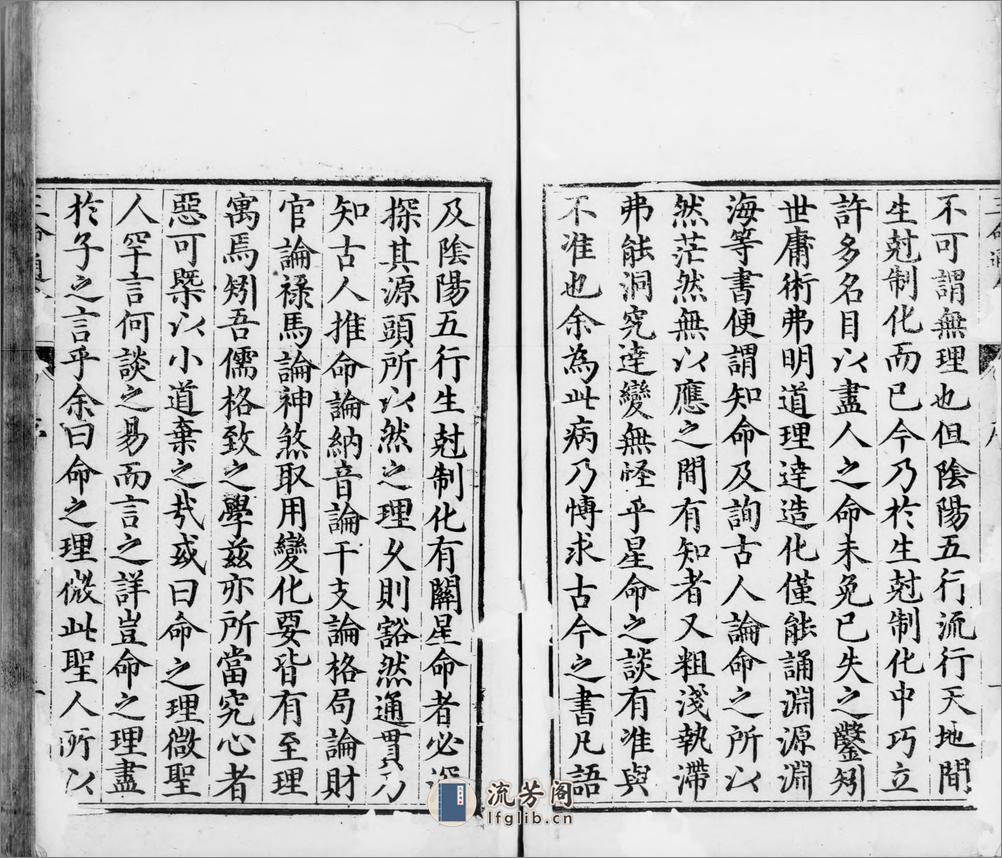 不可謂無理也但陰陽五行流行天地間
生尅制化而已今乃於生尅制化中巧立
許多名目以盡人之命未免已失之鑿矧
世庸術弗明道理達造化僅能誦淵源淵
海等書便謂知命及詢古人論命之所以
然茫然無以應之間有知者又粗淺執滯
弗能洞究達變無怪乎星命之談有准與
不准也余為此病乃愽求古今之書凡語
及陰陽五行生尅制化有關星命者必深
探其源頭所以然之理久則豁然通貫乃
知古人推命論納音論干支論格局論財
官論祿馬論神煞取用變化要皆有至理
寓焉矧吾儒格致之學兹亦所當究心者
惡可槩以小道棄之㢤或曰命之理微聖
人罕言何談之易而言之詳豈命之理盡
於子之言乎余曰命之理微此聖人所以
三命通
流芳阁
lfglib.cn